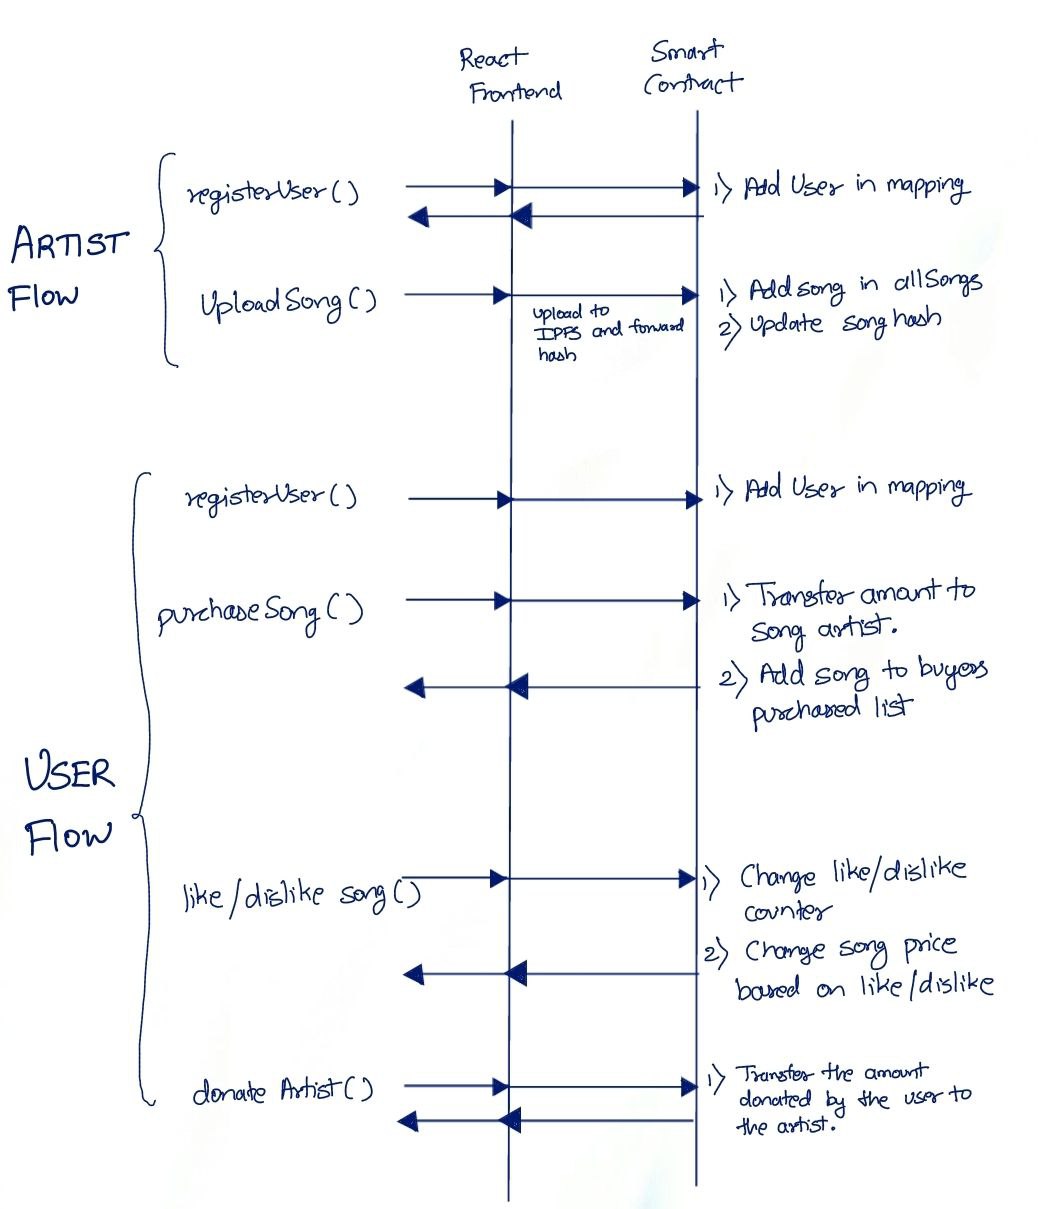 React
Frontend
Smart
Contract
ARTIST
Flow
registerUser()
1) Add User in mapping
UploadSong()
upload to
IPFS and forward
hash
1) Add song in allSongs
2) Update song hash
USER
Flow
registerUser()
1) Add User in mapping
purchaseSong()
1) Transfer amount to
song artist.
2) Add song to buyers
purchased list
like/dislike song()
1) Change like/dislike
counter
2) Change song price
based on like/dislike
donate Artist()
1) Transfer the amount
donated by the user to
the artist.